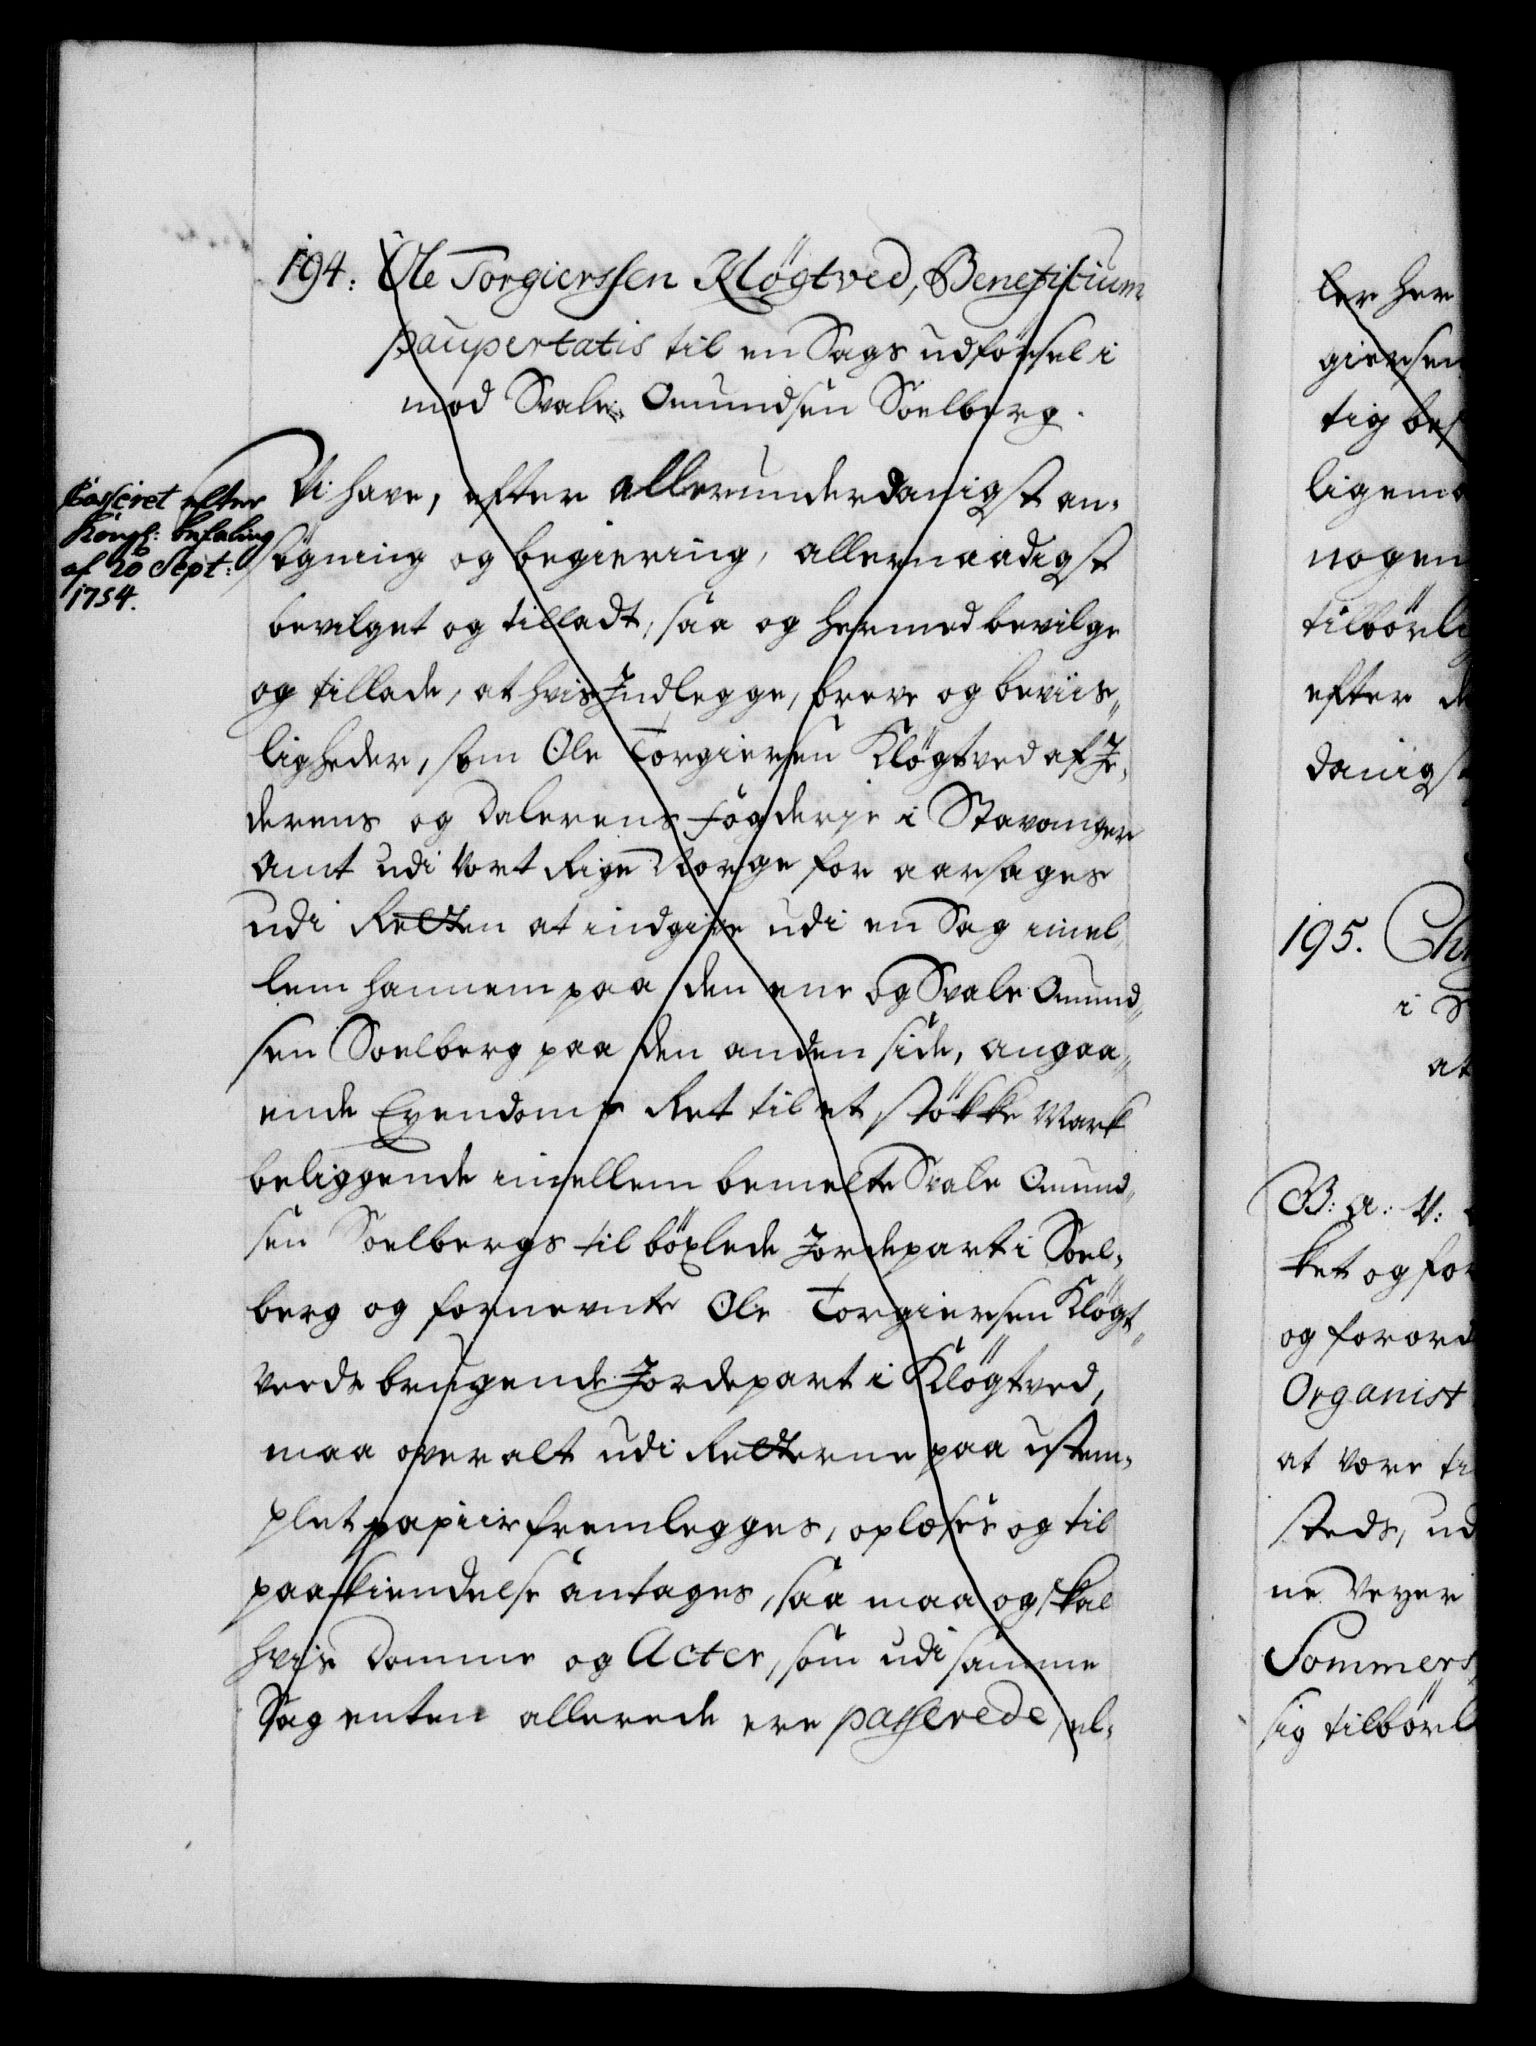 194. Ole Torgierssen Kløgtved, Beneficium
paupertatis til en Sags udførsel i
mod Svale Omundsen Soelberg.
Casseret efter
Kongl: befaling
af 20 Sept:
1754.
Vi have, efter allerunderdanigst an-
søgning og begiering, allernaadigst
bevilget og tilladt, saa og hermed bevilge
og tillade, at hvis Indlegge, breve og beviis-
ligheder, som Ole Torgiersen Kløgtved af Je-
derens og Dalerens Fogderie i Stavanger
Amt udi Vort Rige Norge foraarsages
udi Retten at indgive udi en Sag imel-
lem hannem paa den ene og Svale Omund-
sen Soelberg paa den anden side, angaa-
ende Eyendoms Ret til et støkke Mark
beliggende imellem bemelte Svale Omund-
sen Soelbergs tilbøxlede Jordepart i Soel-
berg og fornevnte Ole Torgiersen Kløgt-
veds brugende Jordepart i Kløgtved,
maa overalt udi Retterne paa ustem-
plet papiir fremlegges, oplæses og til
paakiendelse antages, saa maa og skal
hvis Domme og Acter, som udi samme
Sag enten allerede ere passerede, el-
ler her
giersen
tig bes
ligem
nogen
tilbørli
efter d
danigst
195. Ch
i S
at
B: A: V:
ket og for
og forord
Organist
at være ti
steds, ud
ne Veyer
Sommers
sig tilbørl